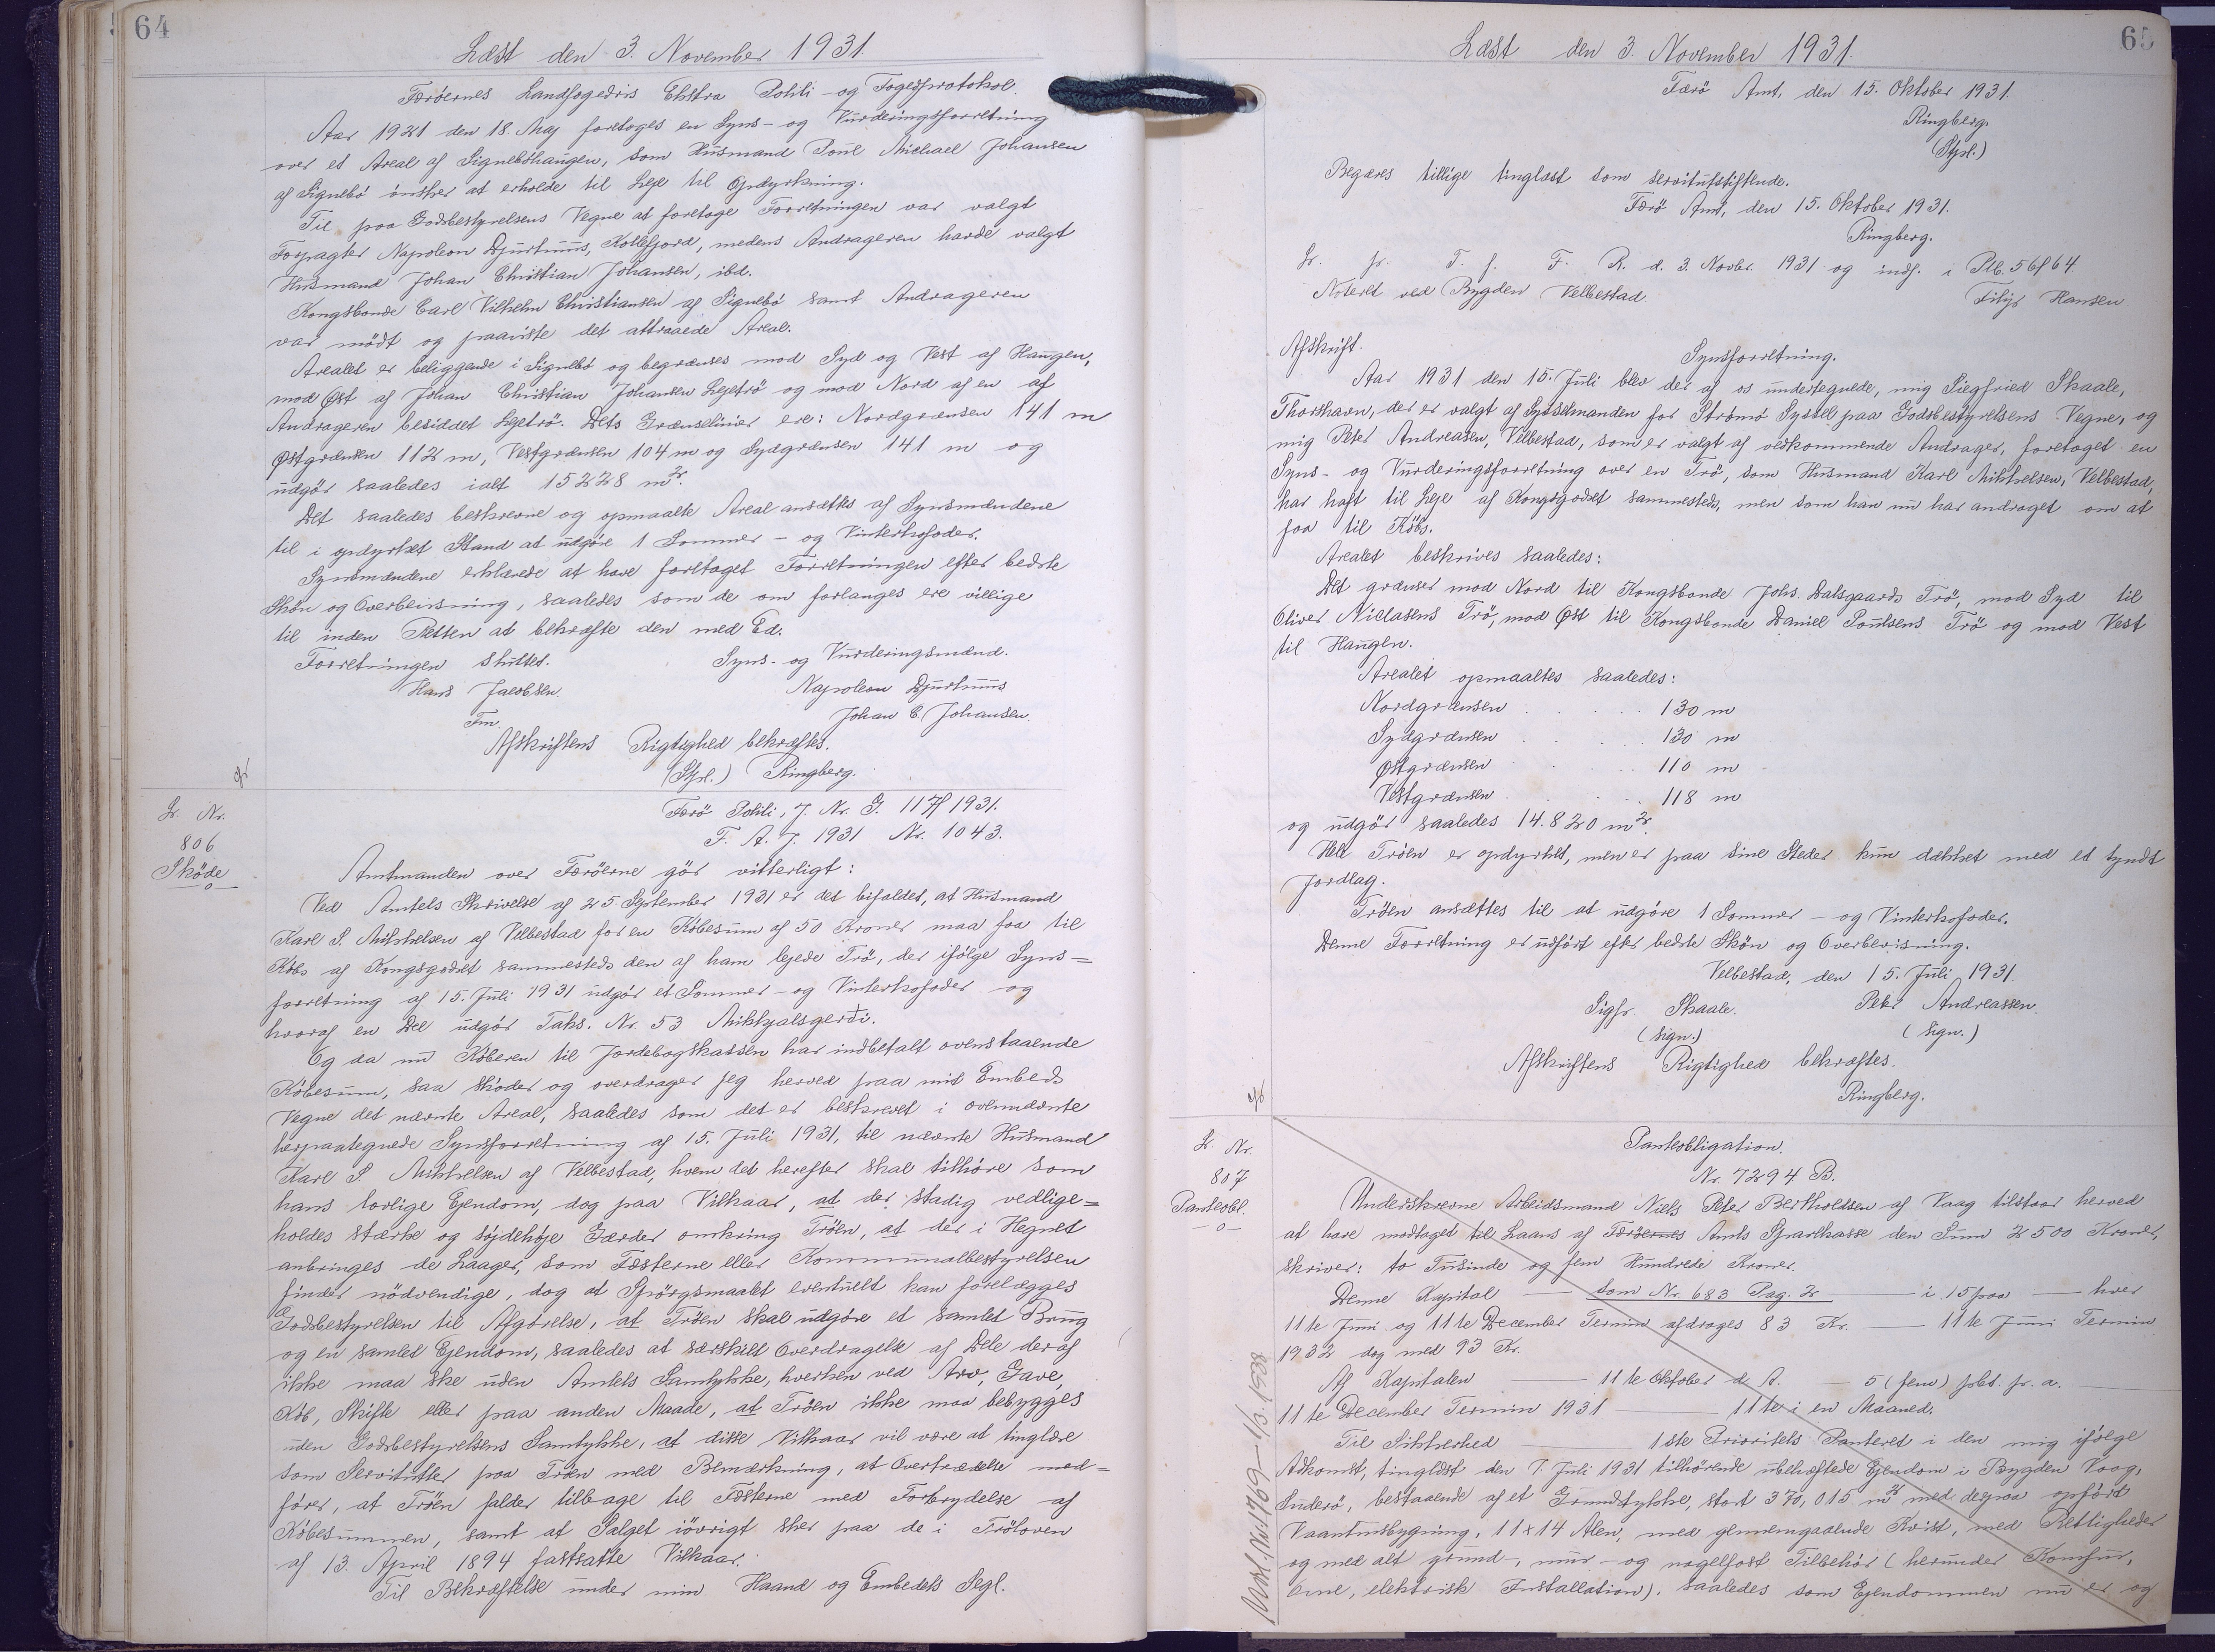 64
Læst den 3. November 1931
Færöernes Landfogedris Ekstra Politi- og Fogedprotokol.
Aar 1921 den 18. Maj foretoges en Syns- og Vurderingsforretning
over et Areal af Signeböhaugen, som Husmand Poul Michael Johansen
af Signebö önsker at erholde til Leje til Opdyrkning.
Til paa Godsbestyrelsens Vegne at foretage Forretningen var valgt
Forpagter Napoleon Djurhuus, Kollefjord, medens Andrageren havde valgt
Husmand Johan Christian Johansen, ibd.
Kongsbonde Carl Vilhelm Christiansen af Signebö samt Andrageren
var mödt og paaviste det attraaede Areal.
Arealet er beliggende i Signebö og begrænses mod Syd og Vest af Haugen,
mod Øst af Johan Christian Johansen Lejetrö og mod Nord af en af
Andrageren besiddet Lejetrö. Dets Grænselinier ere: Nordgrænsen 141 m
Østgrænsen 112 m, Vestgrænsen 104 m og Sydgrænsen 141 m og
udgör saaledes ialt 15228 m2.
Det saaledes beskrevne og opmaalte Areal ansættes af Synsmændene
til i opdyrket Stand at udgöre 1 Sommer- og Vinterkofoder.
Synsmændene erklærede at have foretaget Forretningen efter bedste
Skön og Overbevisning, saaledes som de om forlanges ere villige
til inden Retten at bekræfte den med Ed.
Forretningen sluttet. Syns- og Vurderingsmænd.
Hans Jacobsen Napoleon Djurhuus
Fm. Johan C. Johansen.
Afskriftens Rigtighed bekræftes.
(Stpl.) Ringberg.
Færö Politi, J. Nr. G. 117/1931.
F. A. J. 1931 Nr. 1043.
L. Nr.
806
Sköde
Amtmanden over Færöerne gör vitterligt:
Ved Amtets Skrivelse af 25 September 1931 er det bifaldet, at Husmand
Karl S. Mikkelsen af Velbestad for en Köbesum af 50 Kroner maa faa til
Köbs af Kongsgodset sammesteds den af ham lejede Trö, der ifölge Syns=
forretning af 15. Juli 1931 udgör et Sommer- og Vinterkofoder og
hvoraf en Del udgör Taks. Nr. 53 Mikkjalsgerði.
Og da nu Köberen til Jordebogskassen har indbetalt ovenstaaende
Köbesum, saa sköder og overdrager jeg herved paa mit Embeds
Vegne det nævnte Areal, saaledes som det er beskrevet i ovennævnte
herpaategnede Synsforretning af 15. Juli 1931, til nævnte Husmand
Karl S. Mikkelsen af Velbestad, hvem det herefter skal tilhöre som
hans lovlige Ejendom, dog paa Vilkaar, at der stadig vedlige=
holdes stærke og söjdehöje Gærder omkring Tröen, at der i Hegnet
anbringes de Laager, som Fæsterne eller Kommunalbestyrelsen
finder nödvendige, dog at Spörgsmaalet eventuelt kan forelægges
Godsbestyrelsen til Afgörelse, at Tröen skal udgöre et samlet Brug
og en samlet Ejendom, saaledes at særskilt Overdragelse af Dele deraf
ikke maa ske uden Amtets Samtykke, hverken ved Arv, Gave,
Köb, Skifte eller paa anden Maade, at Tröen ikke maa bebygges
uden Godsbestyrelsens Samtykke, at disse Vilkaar vil være at tinglæse
som Servitutter paa Tröen med Bemærkning, at Overtrædelse med=
förer, at Tröen falder tilbage til Fæsterne med Forbrydelse af
Köbesummen, samt at Salget iövrigt sker paa de i Tröloven
af 13. April 1894 fastsatte Vilkaar.
Til Bekræftelse under min Haand og Embedets Segl.
65
Læst den 3. November 1931.
Færö Amt, den 15. Oktober 1931.
Ringberg.
(Stpl.)
Begæres tillige tinglæst som servitutstiftende.
Færö Amt, den 15. Oktober 1931.
Ringberg.
L. pr. T. f. F. R. d. 3. Novbr. 1931 og indf. i Ptb. 56/64.
Noteret ved Bygden Velbestad Filip Hansen
Afskrift.
Synsforretning.
Aar 1931 den 15. Juli blev der af os undertegnede, mig Siegfried Skaale,
Thorshavn, der er valgt af Sysselmanden for Strömö Syssel paa Godsbestyrelsens Vegne, og
mig Peter Andreasen, Velbestad, som er valgt af vedkommende Andrager, foretaget en
Syns- og Vurderingsforretning over en Trö, som Husmand Karl Mikkelsen, Velbestad,
har haft til Leje af Kongsgodset sammesteds, men som han nu har andraget om at
faa til Köbs.
Arealet beskrives saaledes:
Det grænser mod Nord til Kongsbonde Johs. Dalsgaards Trö, mod Syd til
Oliver Niclasens Trö, mod Øst til Kongsbonde Daniel Poulsens Trö og mod Vest
til Haugen.
Arealet opmaaltes saaledes:
Nordgrænsen . . . . 130 m
Sydgrænsen . . . . 130 m
Østgrænsen . . . . 110 m
Vestgrænsen . . . . 118 m
og udgör saaledes 14.820 m2.
Hele Tröen er opdyrket, men er paa sine Steder kun dækket med et tyndt
Jordlag.
Tröen ansættes til at udgöre 1 Sommer- og Vinterkofoder.
Denne Forretning er udfört efter bedste Skön og Overbevisning.
Velbestad, den 15. Juli 1931.
Sigfr. Skaale. Peter Andreassen.
(sign.) (sign.)
Afskriftens Rigtighed bekræftes.
Ringberg.
L. Nr.
807
Panteobl.
Panteobligation.
Nr. 7294 B.
Underskrevne Arbeidsmand Niels Peter Bertholdsen af Vaag tilstaar herved
at have modtaget til Laans af Færöernes Amts Sparekasse den Sum 2500 Kroner,
skriver: to Tusinde og fem Hundrede Kroner.
Denne Kapital — som Nr. 683 Pag. 2 — i 15 paa — hver
11te Juni og 11te December Termin afdrages 83 Kr. — 11te Juni Termin
1932 dog med 93 Kr.
Af Kapitalen — 11te Oktober d. A. — 5 (fem) pct. pr. a. —
11te December Termin 1931 — 11te i en Maaned.
Til Sikkerhed — 1ste Prioritets Panteret i den mig ifölge
Adkomst, tinglæst den 7. Juli 1931 tilhörende ubehæftede Ejendom i Bygden Vaag,
Suderö, bestaaende af et Grundstykke, stort 370,015 m2 med derpaa opfört
Vaaningsbygning, 11x14 Alen, med gennemgaaende Kvist, med Rettigheder
og med alt grund-, mur- og nagelfast Tilbehör (herunder Komfur,
Ovne, elektrisk Installation), saaledes som Ejendommen nu er og
Udsl. No 1769 - 1/3. 1538